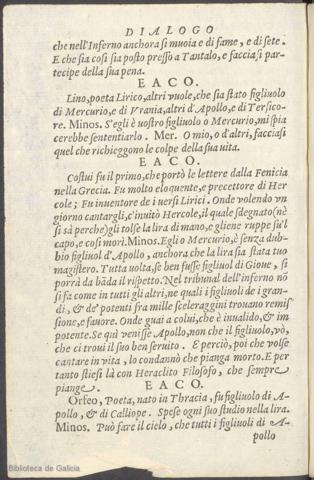 DIALOGO
che nell'Inferno anchora si muoia e di fame, e di sete.
E che sia così sia posto presso a Tantalo, e facciasi par-
tecipe della sua pena.
EACO.
Lino, poeta Lirico, altri vuole, che sia stato figliuolo
di Mercurio, e di Vrania, altri d'Apollo, e di Tersico-
re. Minos. S'egli è uostro figliuolo o Mercurio, mi spia
cerebbe sententiarlo. Mer. O mio, o d'altri, facciasi
quel che richieggono le colpe della sua vita.
EACO.
Costui fu il primo, che portò le lettere dalla Fenicia
nella Grecia. Fu molto eloquente, e precettore di Her
cole; Fu inuentore de i uersi Lirici. Onde volendo vn
giorno cantargli, c'inuitò Hercole, il quale sdegnato (nè
si sà perche) gli tolse la lira di mano, e gliene ruppe su'l
capo, e così morì. Minos. Egli o Mercurio, è senza dub-
bio figliuol d'Apollo, anchora che la lira sia stata tuo
magistero. Tutta uolta, se ben fusse figliuol di Gioue, si
porrà da bāda il rispetto. Nel tribunal dell'inferno nō
si fa come in tutti gli altri, ne quali i figliuoli de i gran-
di, & de' potenti fra mille sceleraggini trouano remis
sione, e fauore. Onde guai a colui, che è inualido, & im
potente. Se quì venisse Apollo, non che il figliuolo, vò,
che ci troui il suo ben seruito. E perciò, poi che volse
cantare in vita, lo condannò che pianga morto. E per
tanto stiesi là con Heraclito Filosofo, che sempre
piange.
EACO.
Orfeo, Poeta, nato in Thracia, fu figliuolo di A-
pollo, & di Calliope. Spese ogni suo studio nella lira.
Minos. Può fare il cielo, che tutti i figliuoli di A-
pollo
Biblioteca de Galicia